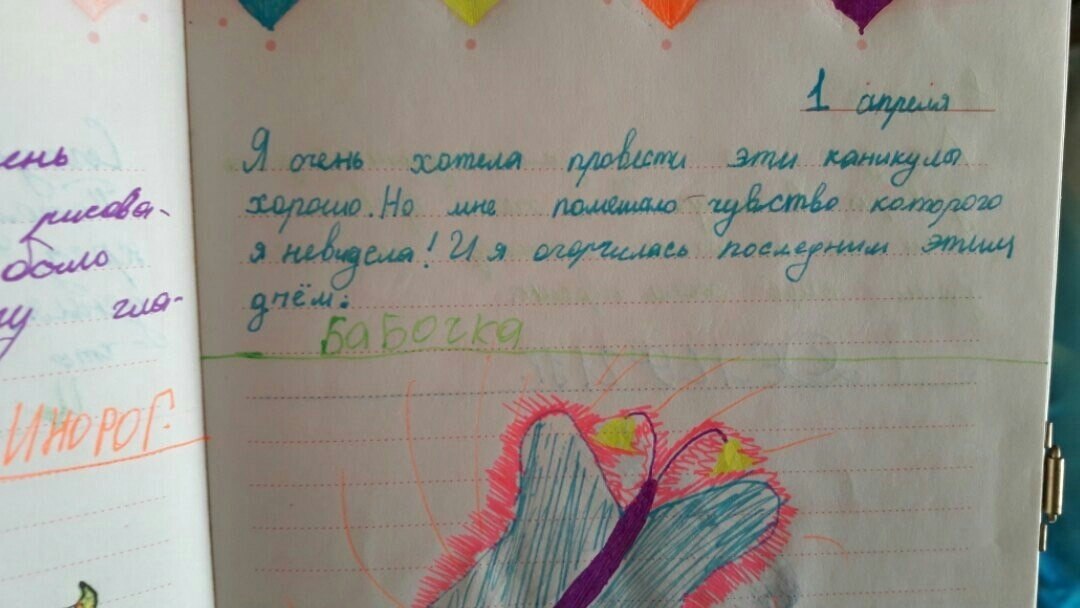 ень
рисова-
было
гла-
ИНОРОГ.
1 апреля
Я очень хотела провести эти каникулы
хорошо. Но мне помешало чувство которого
я невидела! И я огорчилась последним этим
днём.
БаБОЧКА